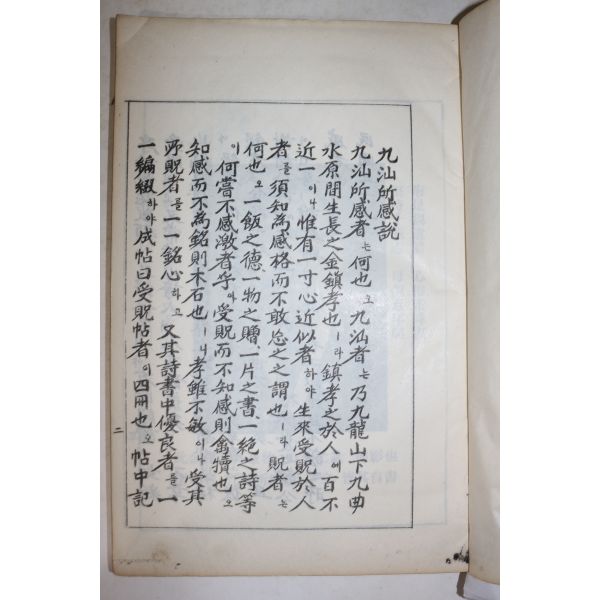 九汕所感說
九汕所感者는何也오九汕者는乃九龍山下九曲
水原間生長之金鎮孝也ㅣ라鎮孝之於人에百不
近一이나惟有一寸心近似者하야生來受貺於人
者를須知為感格而不敢忘之之謂也ㅣ라貺者는
何也오一飯之德、一物之贈、一片之書、一絶之詩等
이何嘗不感激者乎아受貺而不知感則禽犢也오
知感而不為銘則木石也ㅣ니孝雖不敏이나受其
所貺者를一銘心하고又其詩書中優良者를一
一編綴하야成帖曰受貺帖者이四冊也오帖中記
二